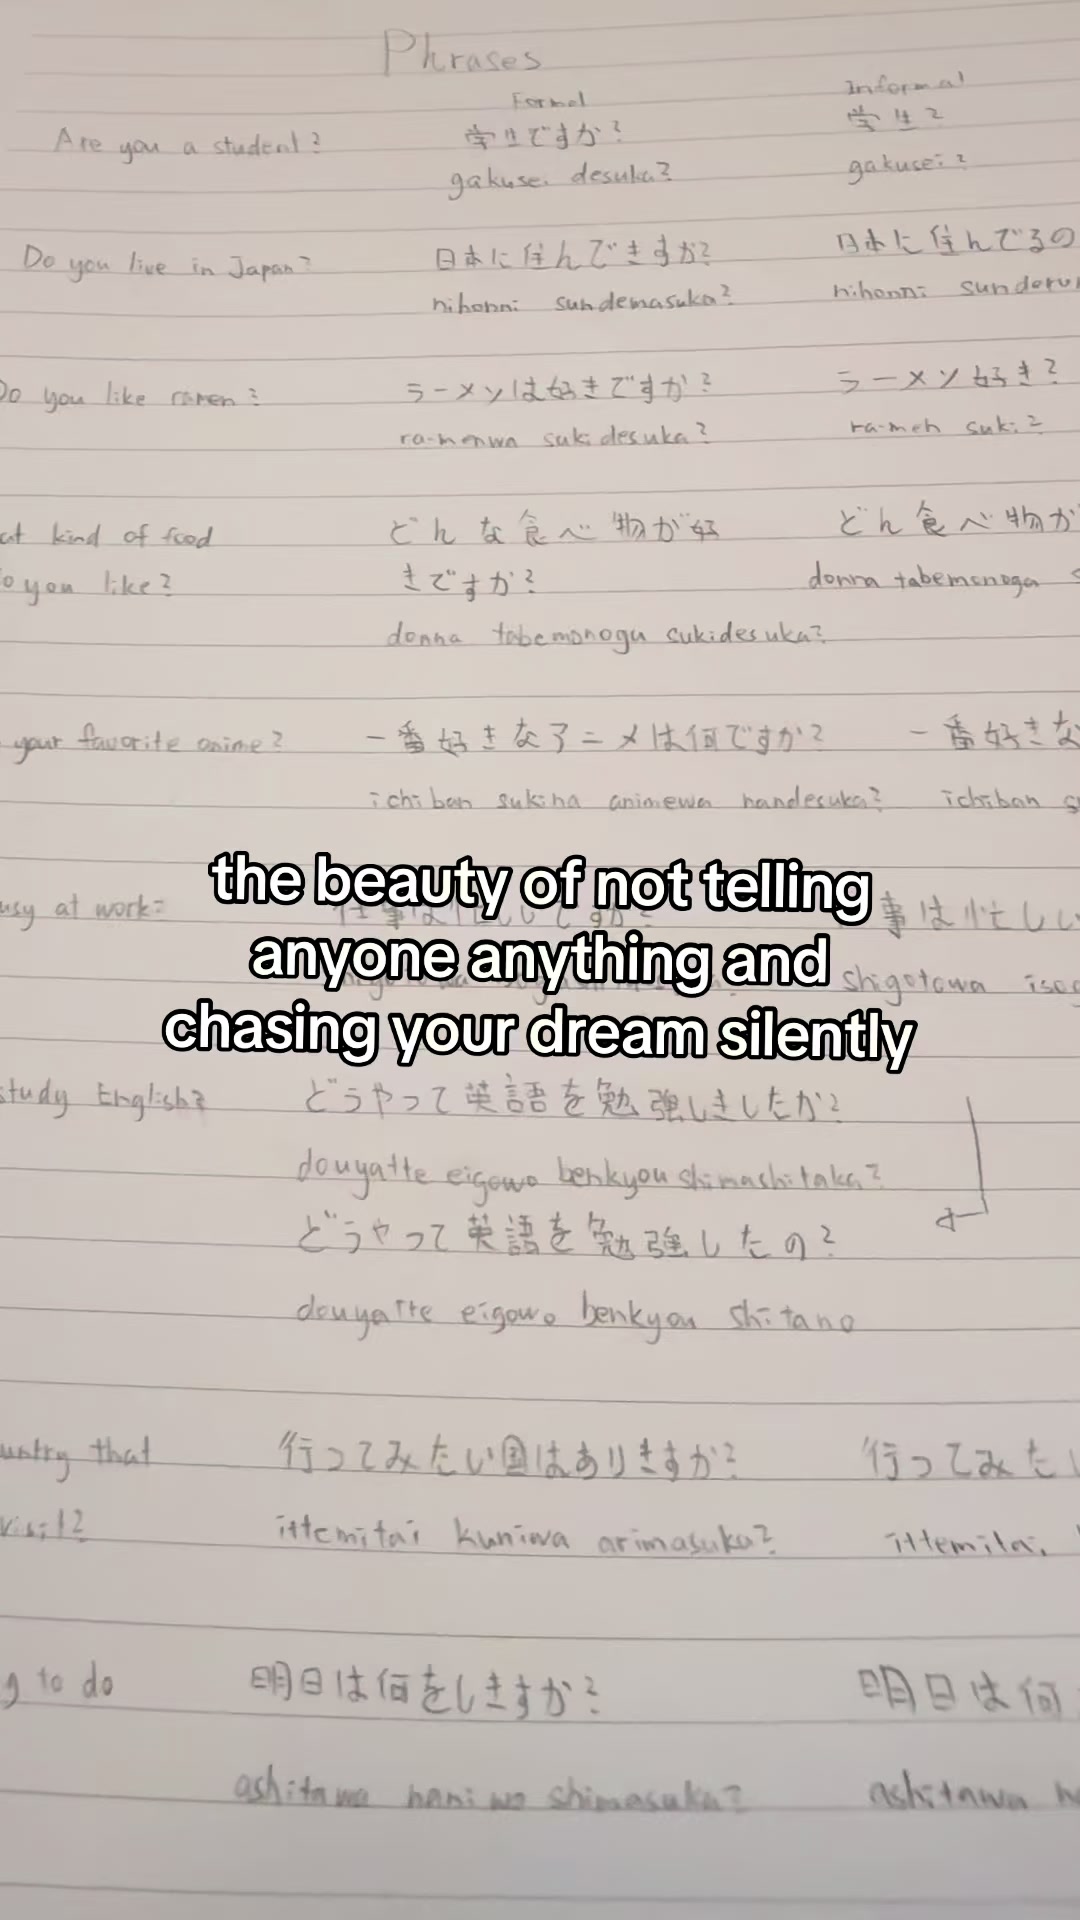 Phrases
Formal
Informal
Are you a student?
学生ですか?
学生?
gakusei desuka?
gakusei?
Do you live in Japan?
日本に住んできすか?
日本に住んでるの
nihonni sundemasuka?
nihonni sunderu
Do you like ramen?
ラーメンは好きですか?
ラーメン好き?
ra-menwa sukidesuka?
ra-men suki?
at kind of food
どんな食べ物が好
どん食べ物が
o you like?
きですか?
donna tabemonoga
donna tabemonoga sukidesuka?
your favorite anime?
一番好きなアニメは何ですか?
一番好きな
ichiban sukina animewa nandesuka?
ichiban
the beauty of not telling
anyone anything and
chasing your dream silently
usy at work?
事は忙しい
shigotowa
study English?
どうやって英語を勉強しましたか?
douyatte eigowo benkyou shimashitaka?
どうやって英語を勉強したの?
douyatte eigowo benkyou shitano
untry that
行ってみたい国はありますか?
行ってみた
visit?
ittemitai kuniwa arimasuka?
ittemitai
g to do
明日は何をしますか?
明日は何
ashitawa naniwo shimasuka?
ashitawa